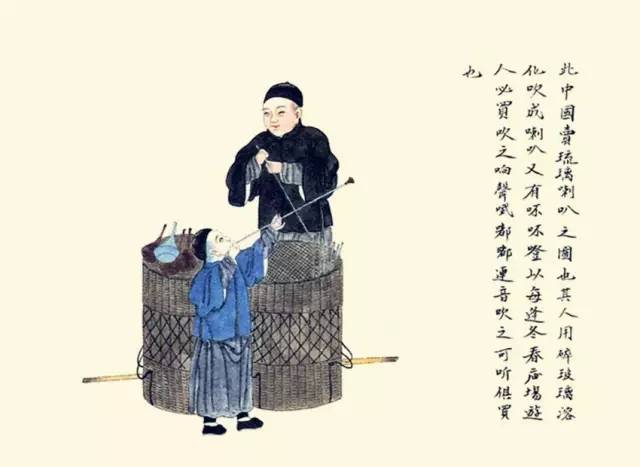 此中國賣琉璃喇叭之圖也其人用碎玻璃溶
化吹成喇叭又有噔以每逢冬春場遊
人必買吹之响聲嘟嘟連音吹之可听俱買
也